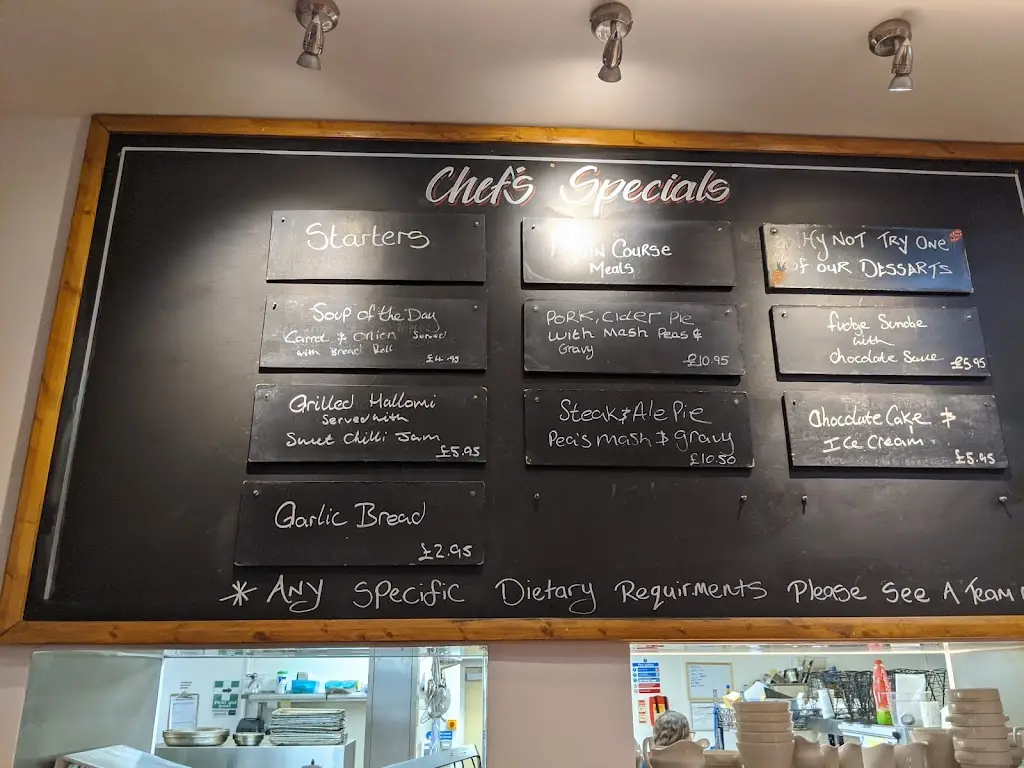 Chef's Specials
Starters
Soup of the Day
Carrot & onion Served
with Bread Roll
£4.95
Grilled Hallomi
Served with
Sweet Chilli Jam
£5.95
Garlic Bread
£2.95
Main Course
Meals
Pork, Cider Pie
with Mash Peas &
Gravy
£10.95
Steak & Ale Pie
Pea's mash & gravy
£10.50
Hy Not Try One
of our Dessarts
Fudge Sundae
with
chocolate Sauce £5.95
Chocolate Cake &
Ice Cream
£5.95
* Any Specific Dietary Requirments Please See A Team